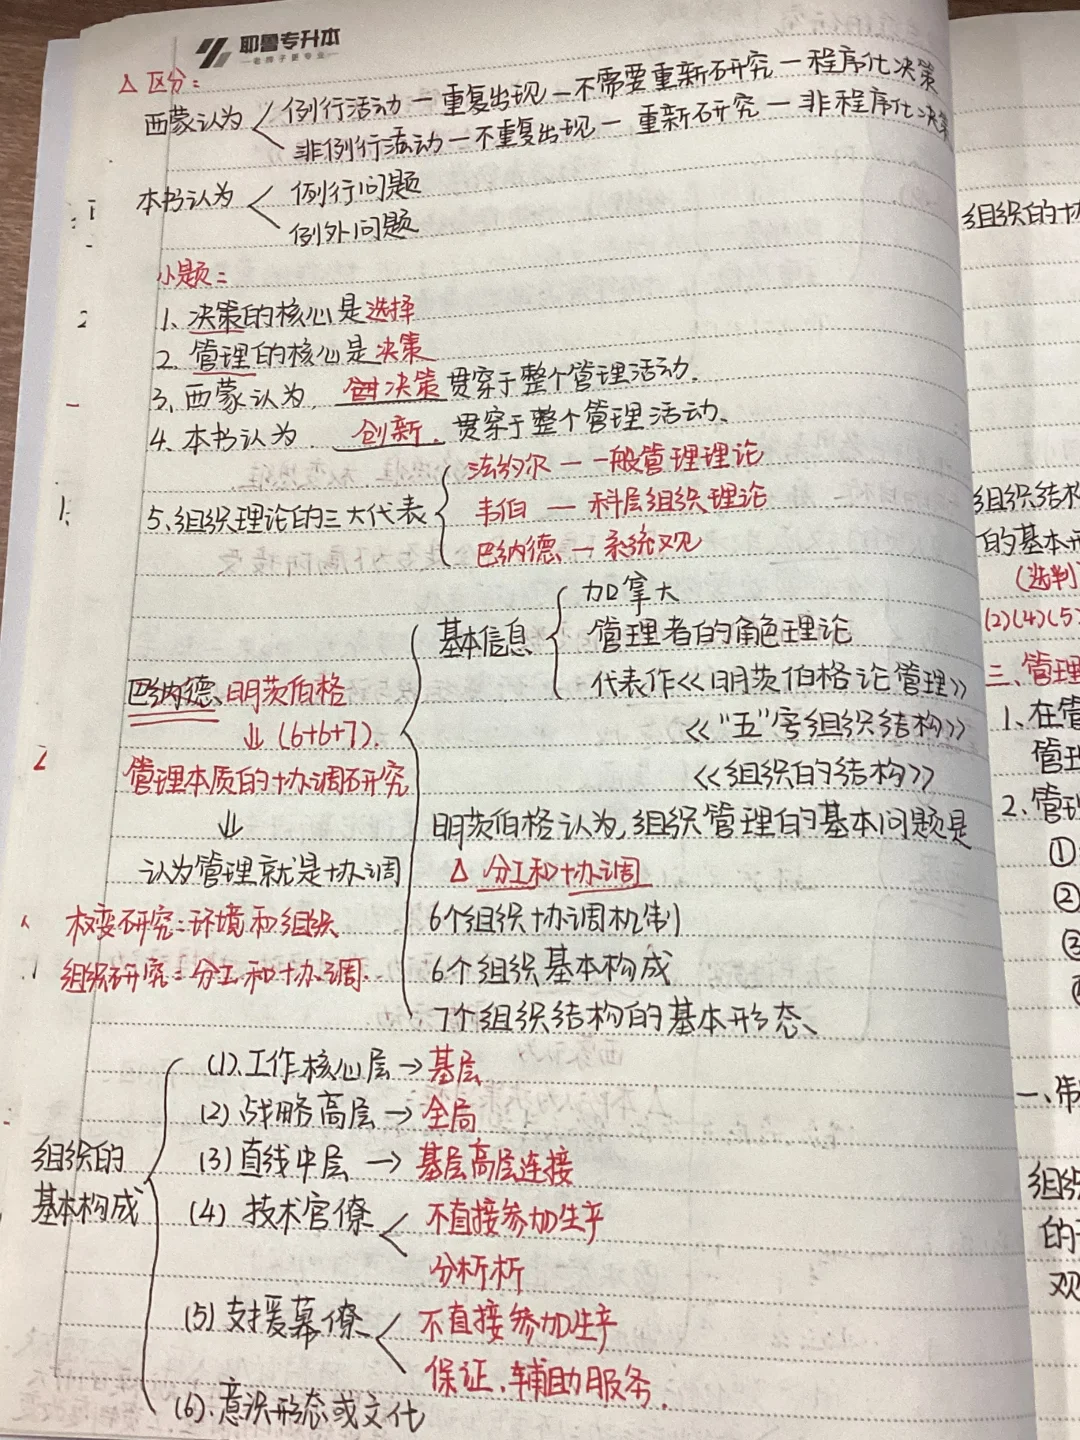 耶鲁专升本
—老牌子更专业—
△ 区分：
西蒙认为 例行活动—重复出现—不需要重新研究—程序化决策
非例行活动—不重复出现—重新研究—非程序化决策
本书认为 例行问题
例外问题
小题：
1、决策的核心是选择
2、管理的核心是决策
3、西蒙认为，决策贯穿于整个管理活动.
4、本书认为，创新，贯穿于整个管理活动、
5、组织理论的三大代表 法约尔—一般管理理论
韦伯—科层组织理论
巴纳德、—系统观
巴纳德、明茨伯格
↓(6+6+7).
管理本质的协调研究
↓
认为管理就是协调
权变研究：环境和组织
组织研究：分工和协调.
基本信息 加拿大
管理者的角色理论
代表作<<明茨伯格论管理>>
<<"五"字组织结构>>
<<组织的结构>>
明茨伯格认为,组织管理的基本问题是
△ 分工和协调
6个组织协调机制
6个组织基本构成
7个组织结构的基本形态、
组织的
基本构成
(1).工作核心层→基层
(2)战略高层→全局
(3)直线中层→基层高层连接
(4)技术官僚 不直接参加生产
分析析
(5)支援幕僚 不直接参加生产
保证、辅助服务.
(6).意识形态或文化
组织的
组织结构
的基本形
(选判)
(2)(4)(5)
三、管理
1、在管
管理
2、管理
①
②
③
一、
组织
的
观